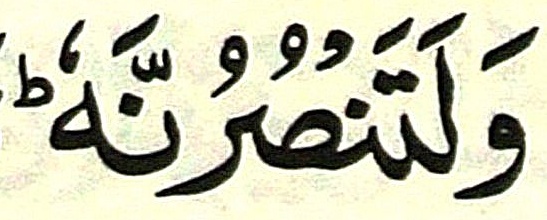 وَلَتَنۡصُرُنَّهٗ ؕ